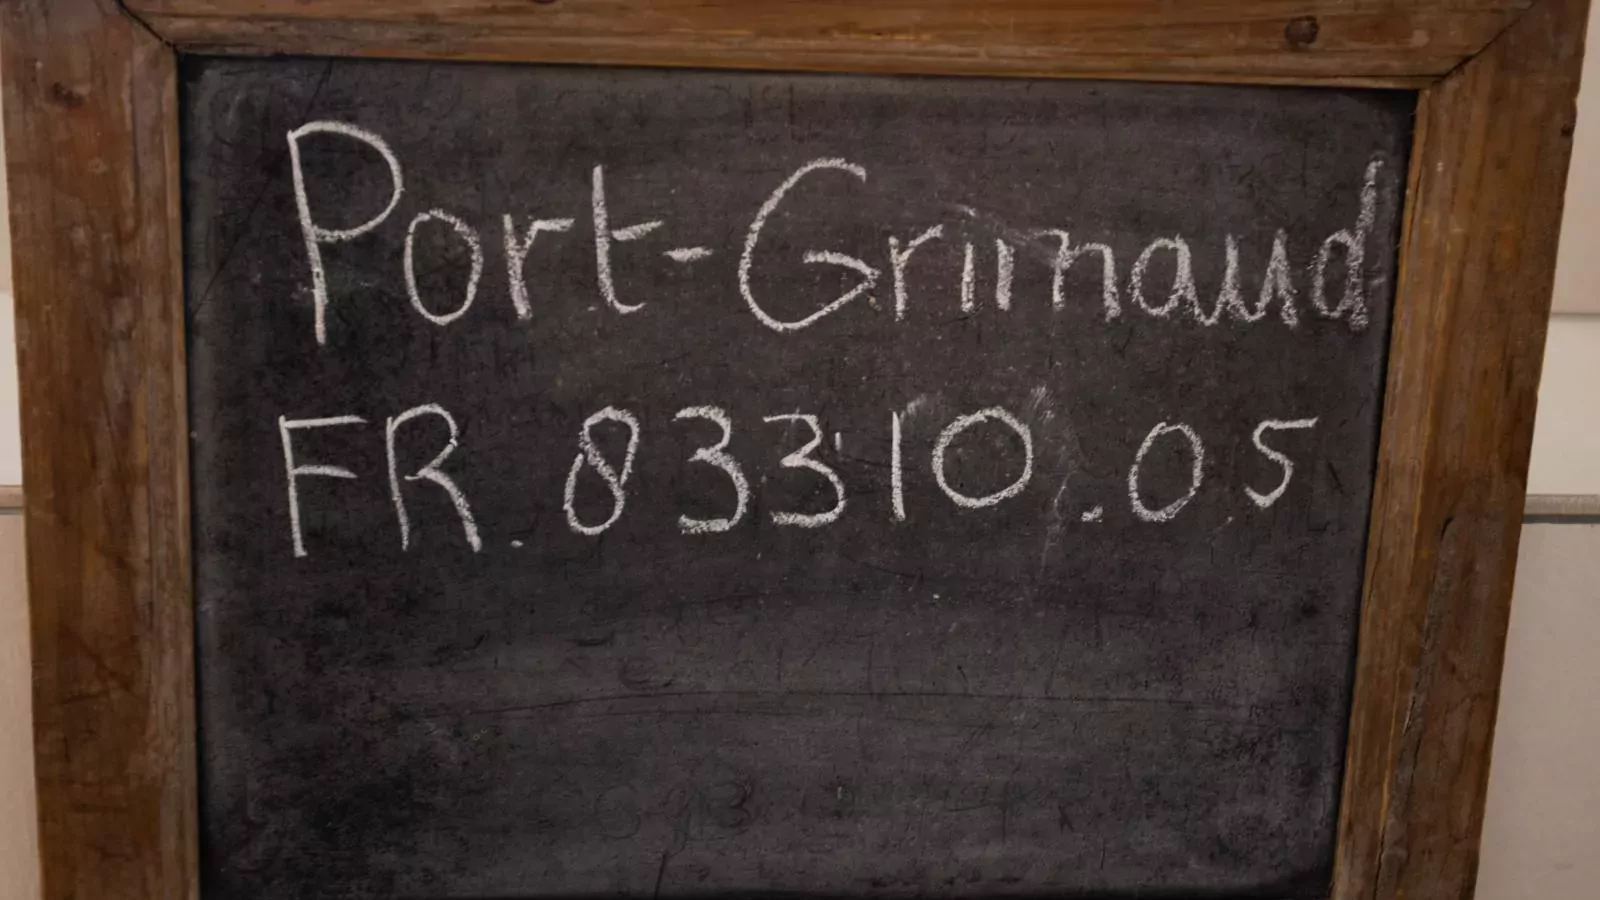 Port-Grimaud
FR. 83310.05